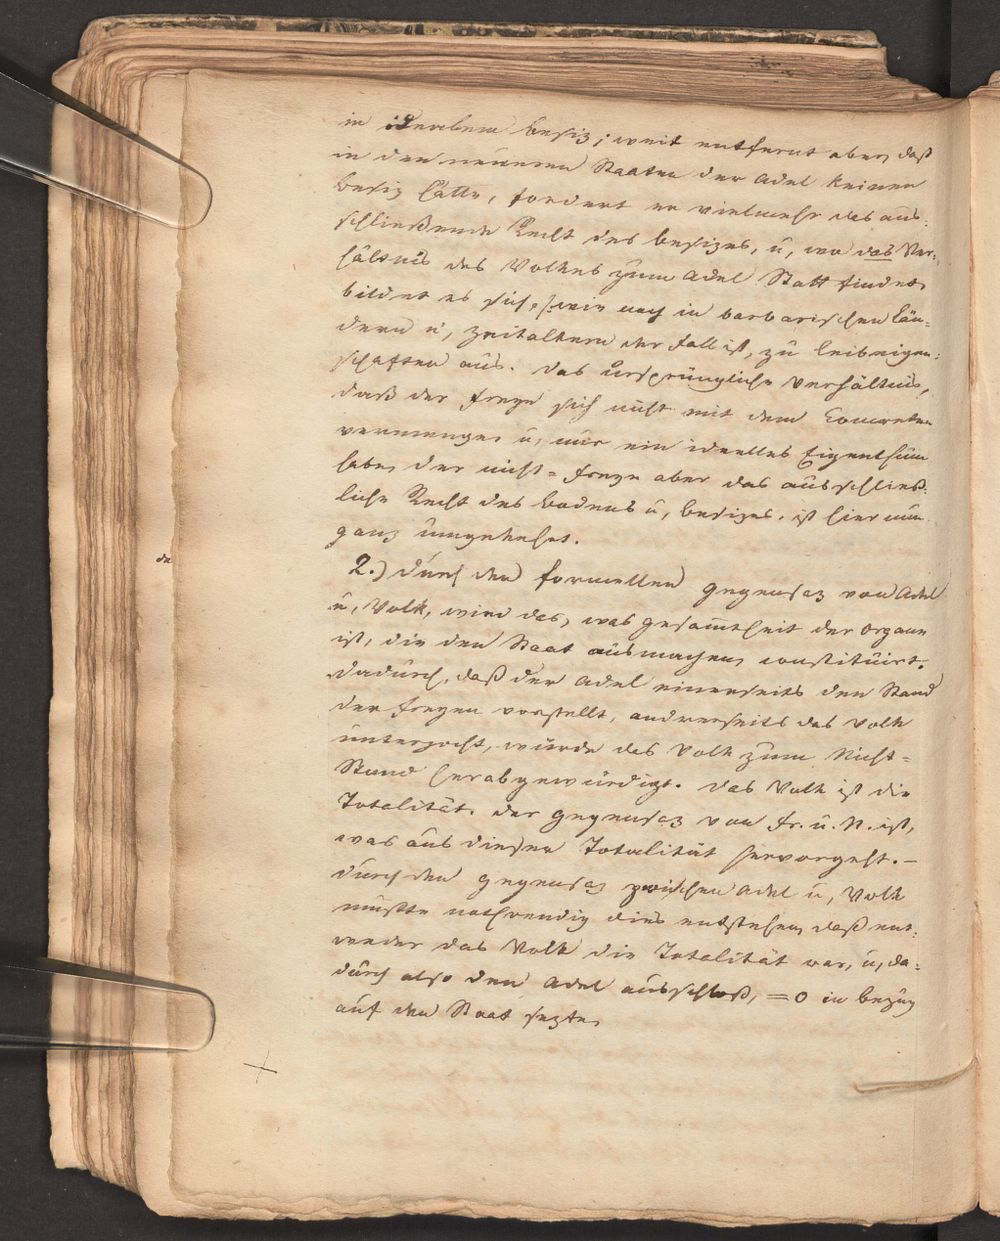 in derselben besiz; weit entfernt aber, daß
in den neueren Staaten der Adel keinen
besiz hätte, fordert er vielmehr das aus:
schließende Recht des besizes, u, wo das Ver:
hältnis des Volkes zum Adel Statt findet,
bildet es sich, wie noch in barbarischen Län:
dern u, Zeitaltern der Fall ist, zu leibeigen:
schaften aus. Das ursprüngliche Verhältnis,
daß der Freye sich nicht mit dem Concreten
vermenge, u, nur ein ideelles Eigenthum
habe, der nicht=Freye aber das ausschließ:
liche Recht des bodens u, besizes, ist hier nun
ganz umgekehrt.
2.) durch den formellen gegensaz von Adel
u, Volk, wird das, was gesammtheit der organe
ist, die den Staat ausmachen, constituirt.
dadurch, daß der Adel einerseits den Stand
der Freyen vorstellt, andrerseits das Volk
unterjocht, wurde das Volk zum Nicht=
Stand herabgewürdigt. Das Volk ist die
Totalität. der gegensaz von Fr. u. N. ist,
was aus dieser Totalität hervorgeht. –
durch den gegensaz zwischen Adel u, Volk
mußte nothwendig dies entstehen, daß ent:
weder das Volk die Totalität war, u, da:
durch also den Adel ausschloß, = 0 in bezug
auf den Staat sezte,
de
+